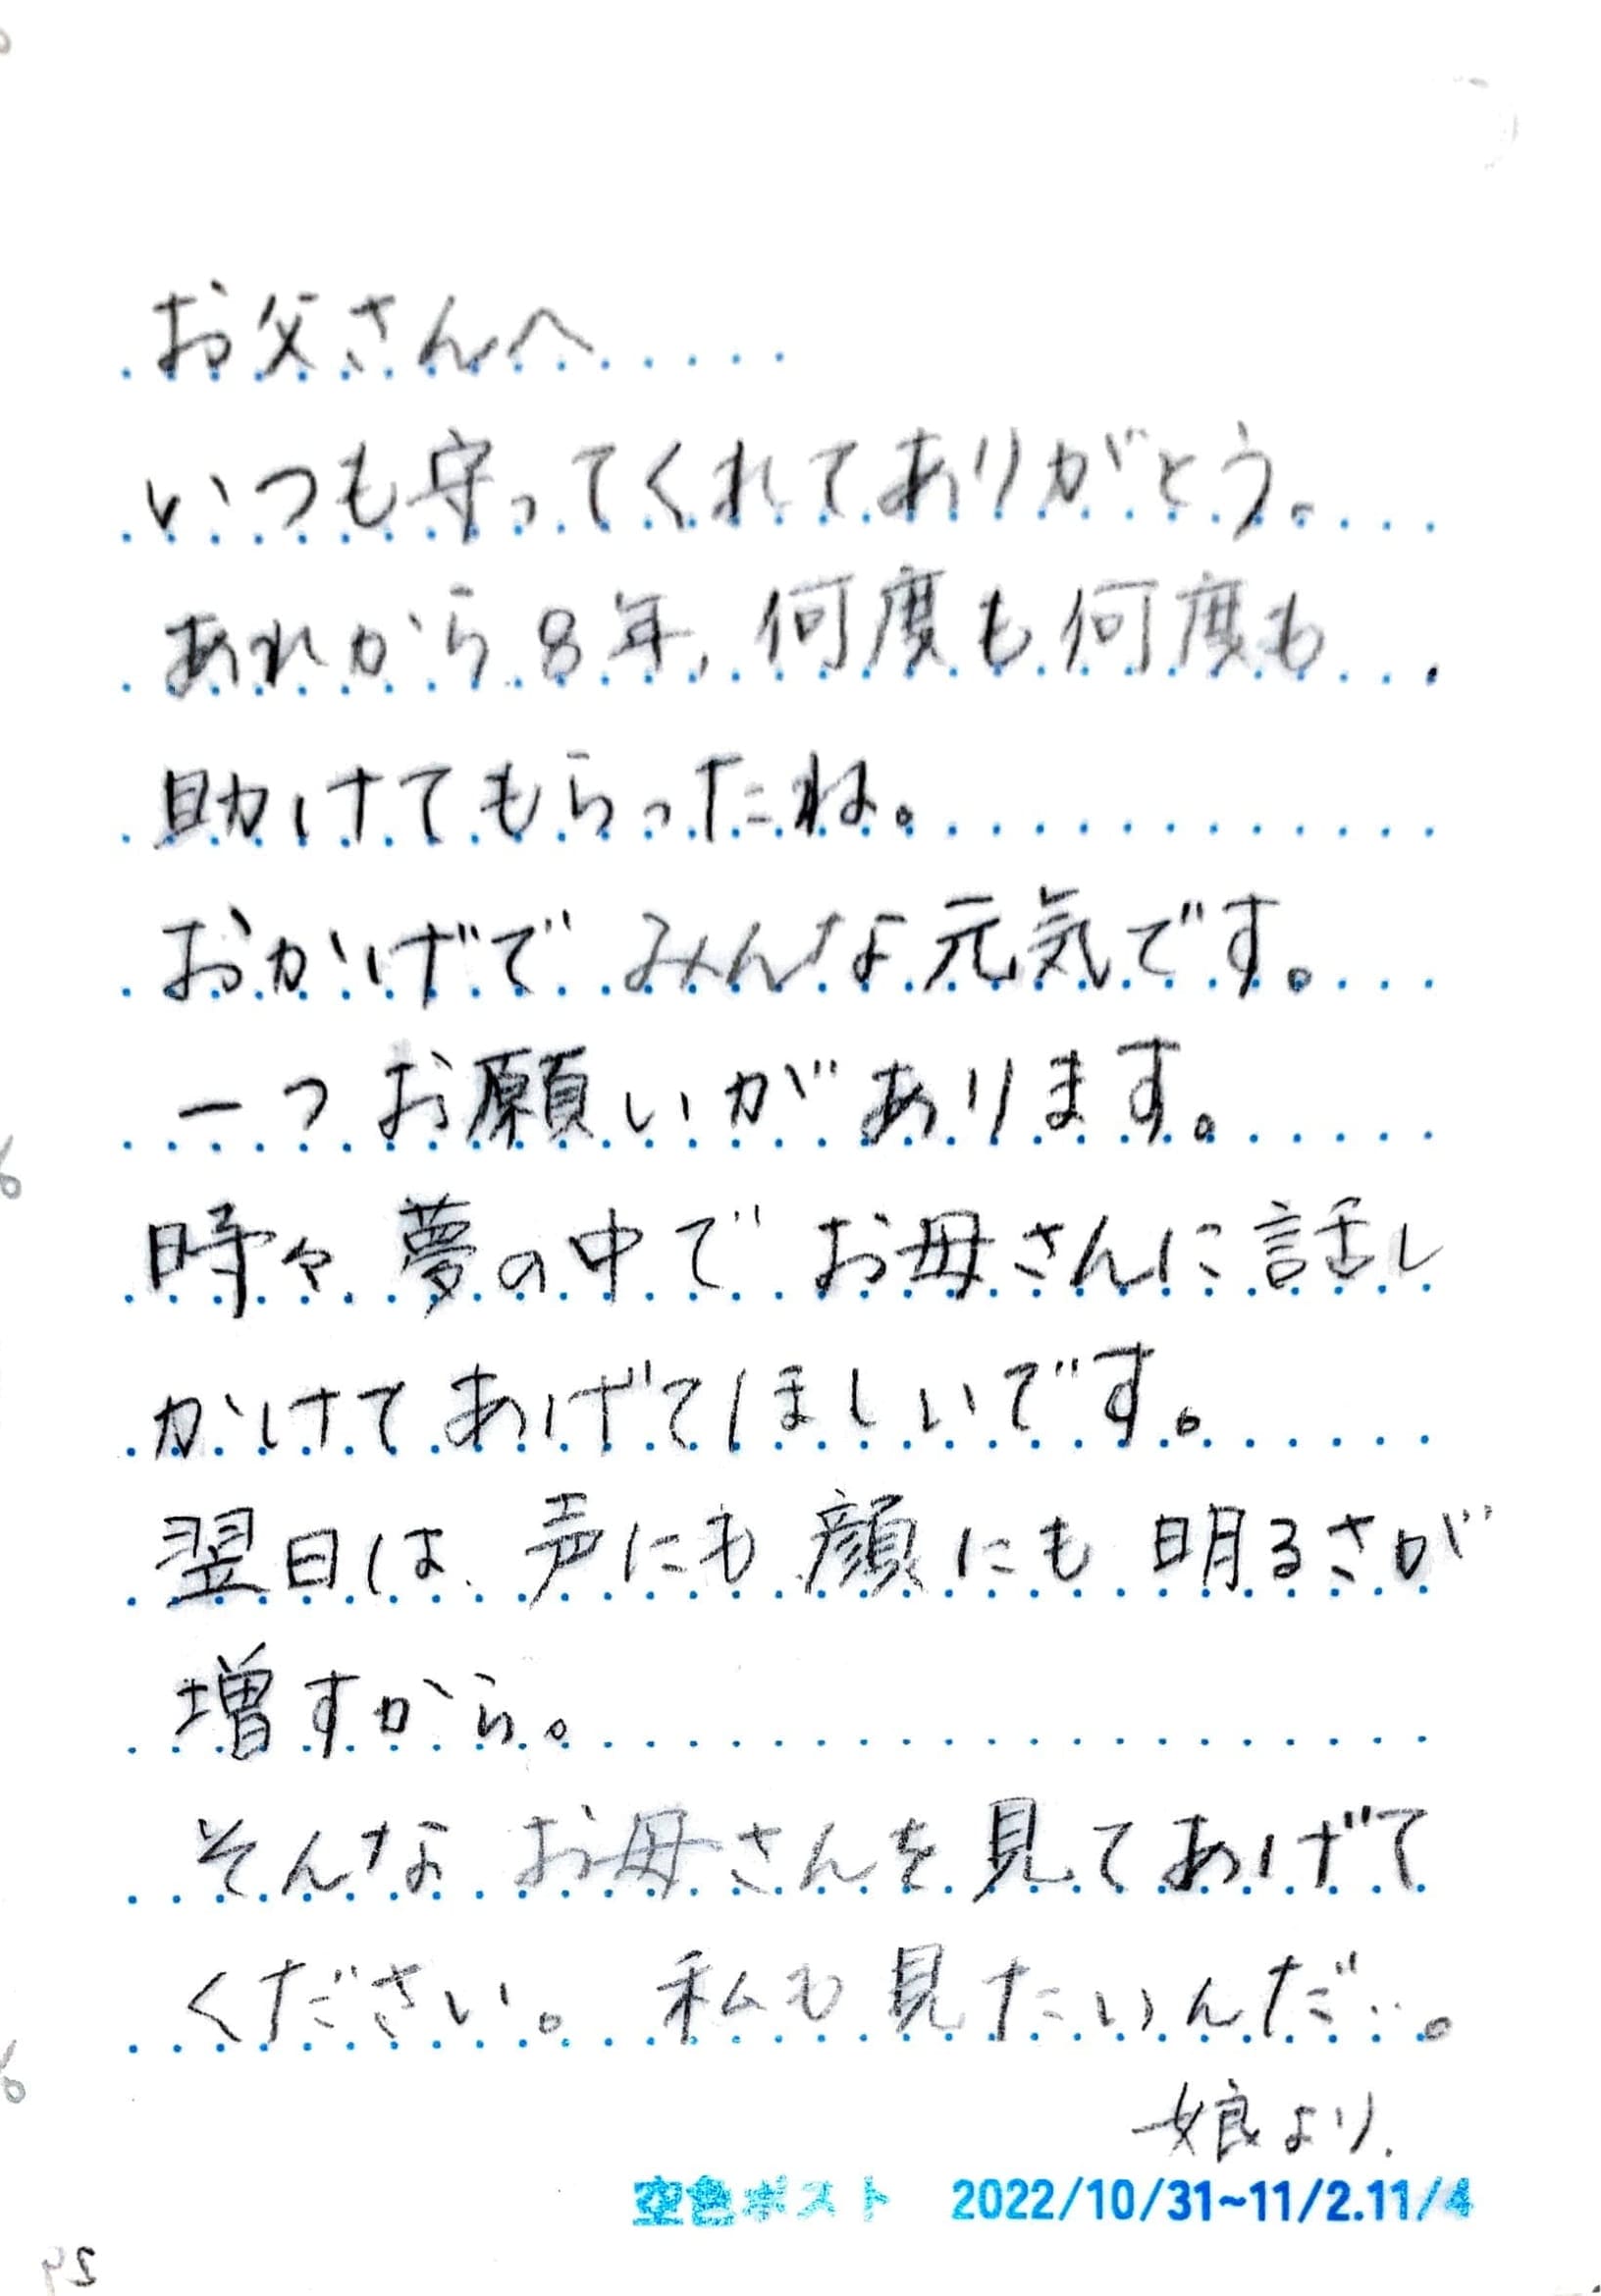 お父さんへ
いつも守ってくれてありがとう。
あれから8年、何度も何度も
助けてもらったね。
おかげで みんな元気です。
一つお願いがあります。
時々 夢の中で お母さんに話し
かけてあげてほしいです。
翌日は、声にも顔にも 明るさが
増すから。
そんな お母さんを見てあげて
ください。 私も見たいんだ…。
娘より.
空色ポスト 2022/10/31~11/2.11/4